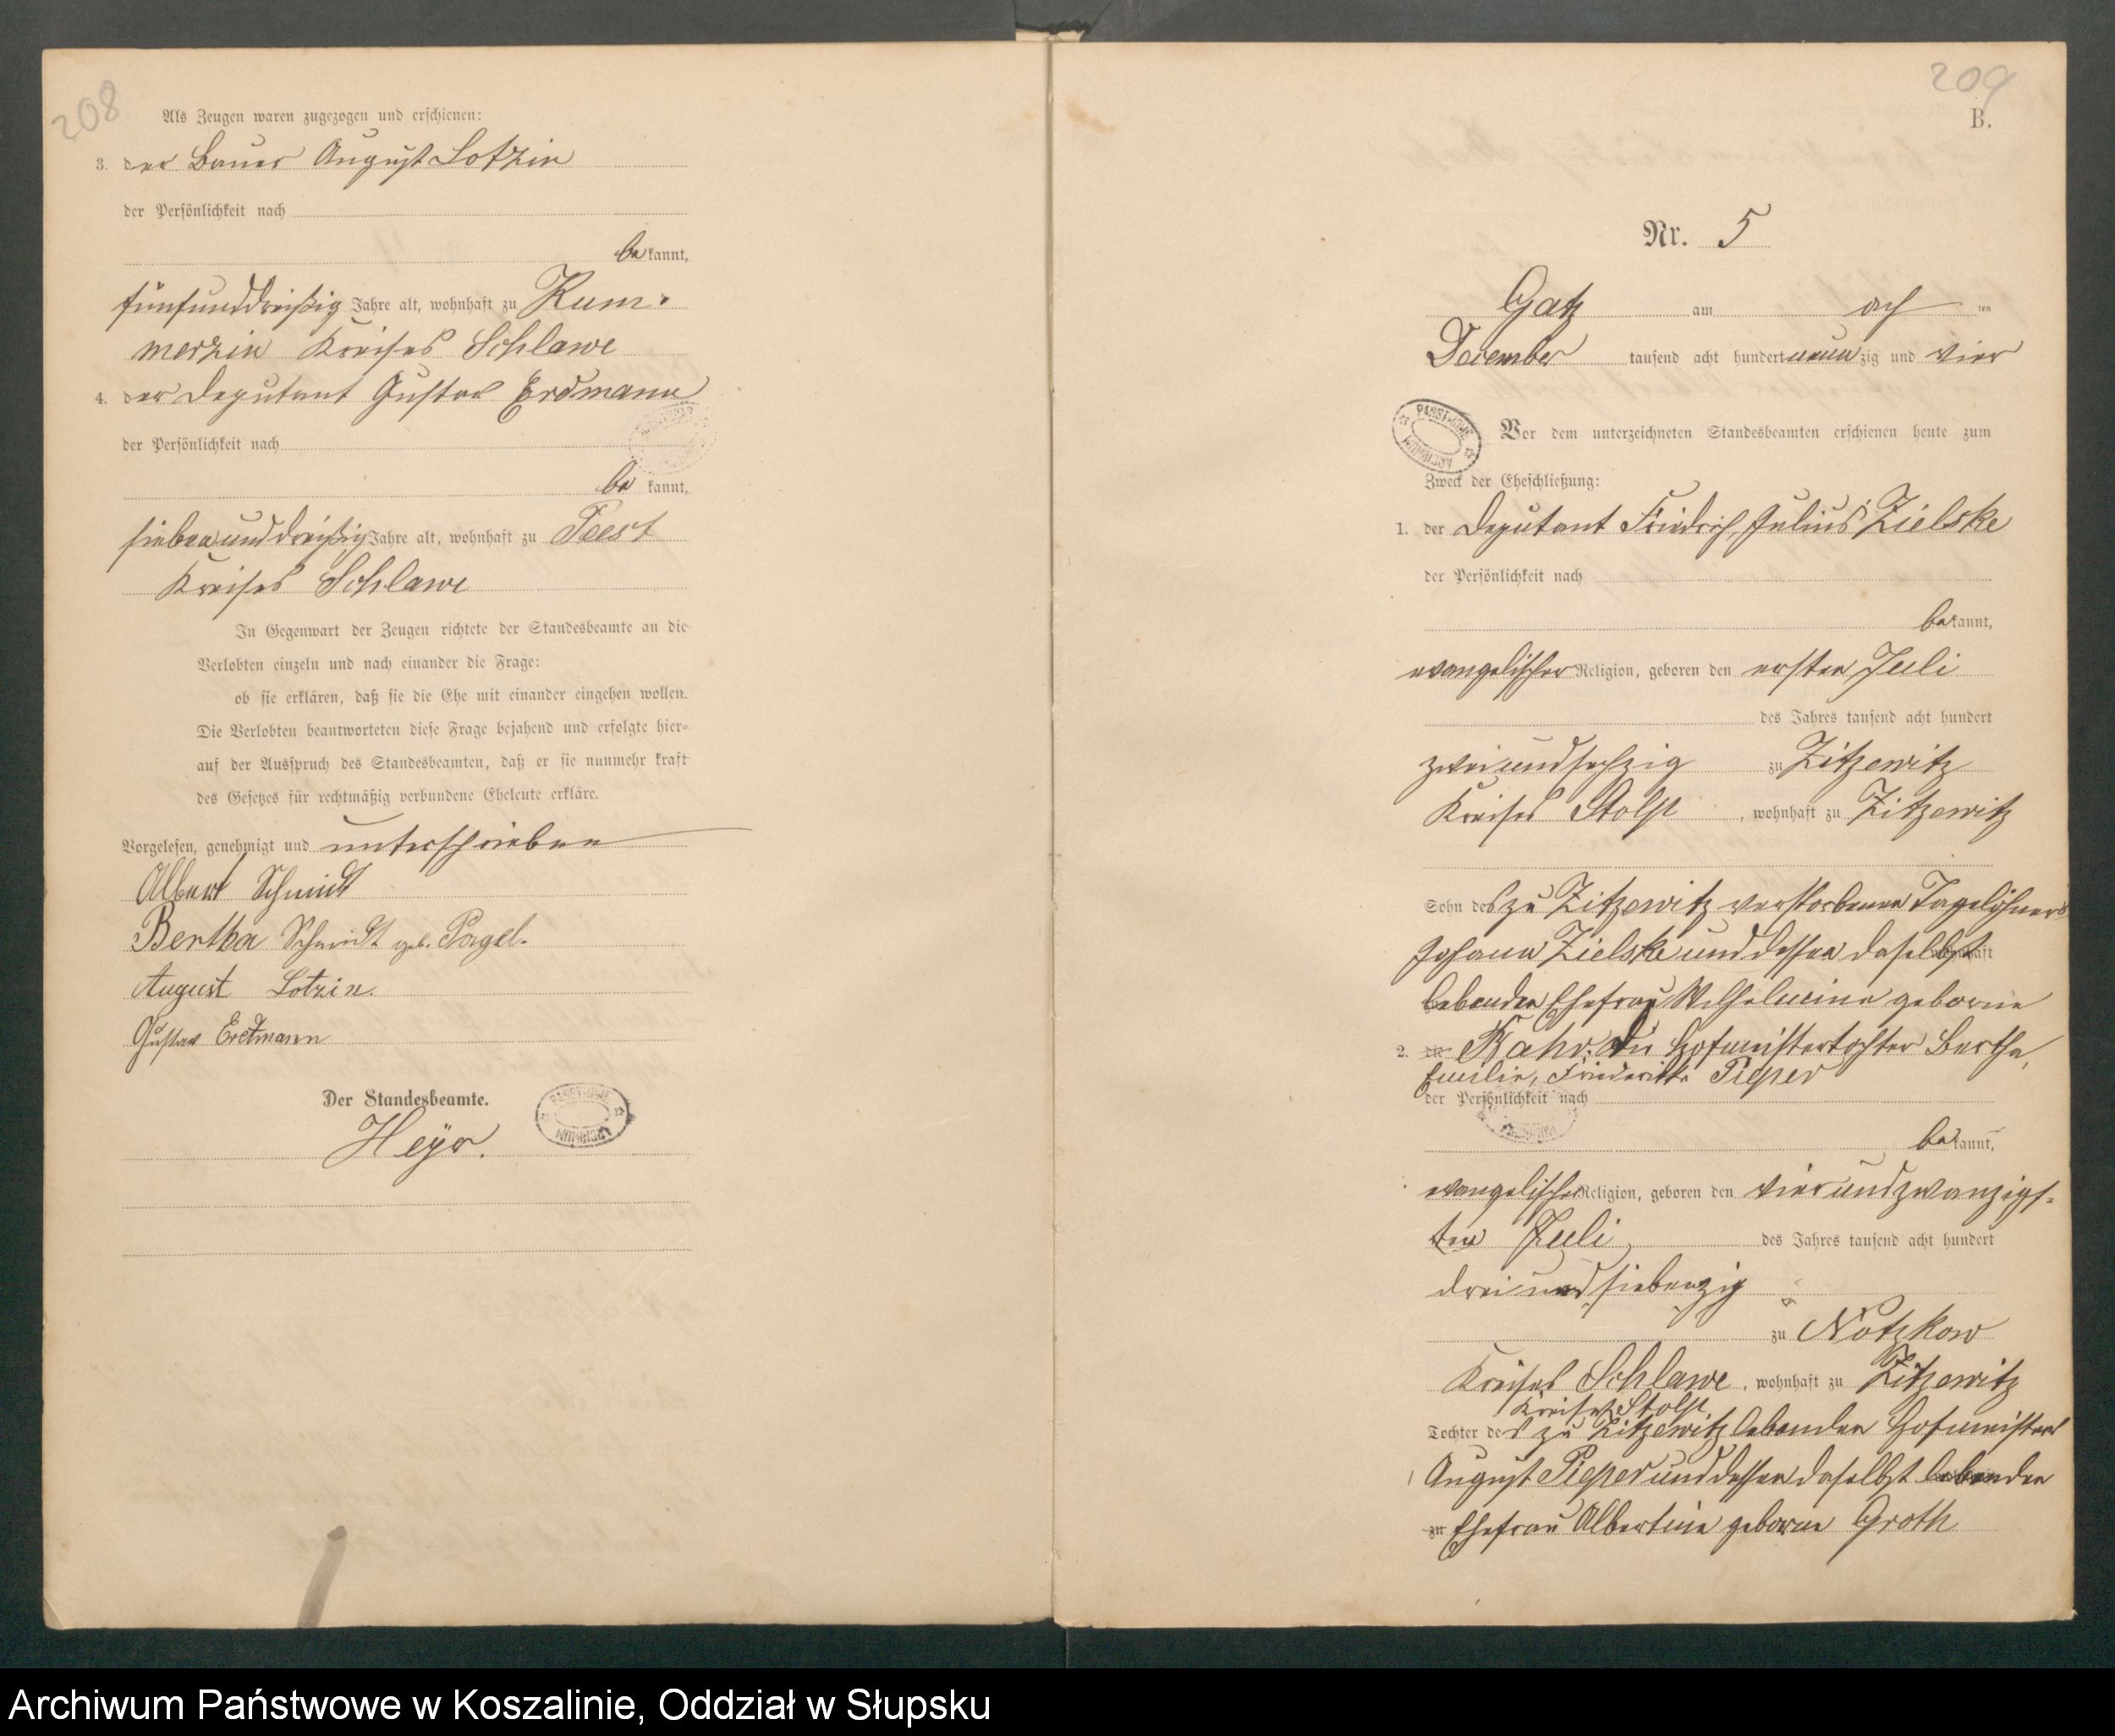 208
Als Zeugen waren zugezogen und erschienen:
3. der Bauer August Lotzin
der Persönlichkeit nach
bekannt,
fünfunddreißig Jahre alt, wohnhaft zu Kum-
merzin Kreises Schlawe
4. der Deputant Gustav Erdmann
der Persönlichkeit nach
be kannt,
siebenunddreißig Jahre alt, wohnhaft zu Peest
Kreises Schlawe
In Gegenwart der Zeugen richtete der Standesbeamte an die
Verlobten einzeln und nach einander die Frage:
ob sie erklären, daß sie die Ehe mit einander eingehen wollen.
Die Verlobten beantworteten diese Frage bejahend und erfolgte hier-
auf der Ausspruch des Standesbeamten, daß er sie nunmehr kraft
des Gesetzes für rechtmäßig verbundene Eheleute erkläre.
Vorgelesen, genehmigt und unterschrieben
Albert Schmidt
Bertha Schmidt geb. Pagel.
August Lotzin.
Gustav Erdmann
Der Standesbeamte.
Heyer.
209
B.
Nr. 5
Gatz am ach ten
December tausend acht hundert neun zig und vier
Vor dem unterzeichneten Standesbeamten erschienen heute zum
Zweck der Eheschließung:
1. der Deputant Friedrich Julius Zielske
der Persönlichkeit nach
bekannt,
evangelischer Religion, geboren den ersten Juli
des Jahres tausend acht hundert
zweiundsechzig zu Zitzewitz
Kreises Stolp, wohnhaft zu Zitzewitz
Sohn des zu Zitzewitz verstorbenen Tagelöhners
Johann Zielske und dessen daselbst
lebenden Ehefrau Wilhelmine geborne
2. die Hofmeistertochter Bertha,
Emilie, Friederike Pieper
der Persönlichkeit nach
bekannt,
evangelischer Religion, geboren den vierundzwanzigs-
ten Juli des Jahres tausend acht hundert
dreiundsiebenzig
zu Notzkow
Kreises Schlawe, wohnhaft zu Zitzewitz
Kreises Stolp
Tochter des zu Zitzewitz lebenden Hofmeisters
August Pieper und dessen daselbst lebenden
zu Ehefrau Albertine geborne Groth
Archiwum Państwowe w Koszalinie, Oddział w Słupsku